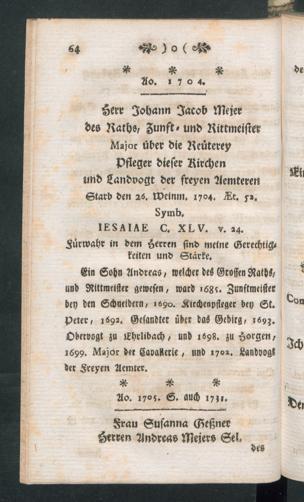 64 ) o (
* * *
Ao. 1704.
Herr Johann Jacob Mejer
des Raths, Zunft- und Rittmeister
Major über die Reüterey
Pfleger dieser Kirchen
und Landvogt der freyen Aemteren
Starb den 26. Weinm. 1704. Æt. 52.
Symb.
IESAIAE C. XLV. v. 24.
Fürwahr in dem Herren sind meine Gerechtig-
keiten und Stärke.
Ein Sohn Andreas, welcher des Grossen Raths,
und Rittmeister gewesen, ward 1685. Zunftmeister
bey den Schneidern, 1690. Kirchenpfleger bey St.
Peter, 1692. Gesandter über das Gebirg, 1693.
Obervogt zu Ehrlibach, und 1698. zu Horgen,
1699. Major der Cavallerie, und 1702. Landvogt
der Freyen Aemter.
* * *
Ao. 1705. S. auch 1731.
Frau Susanna Geßner
Herren Andreas Mejers Sel.
des